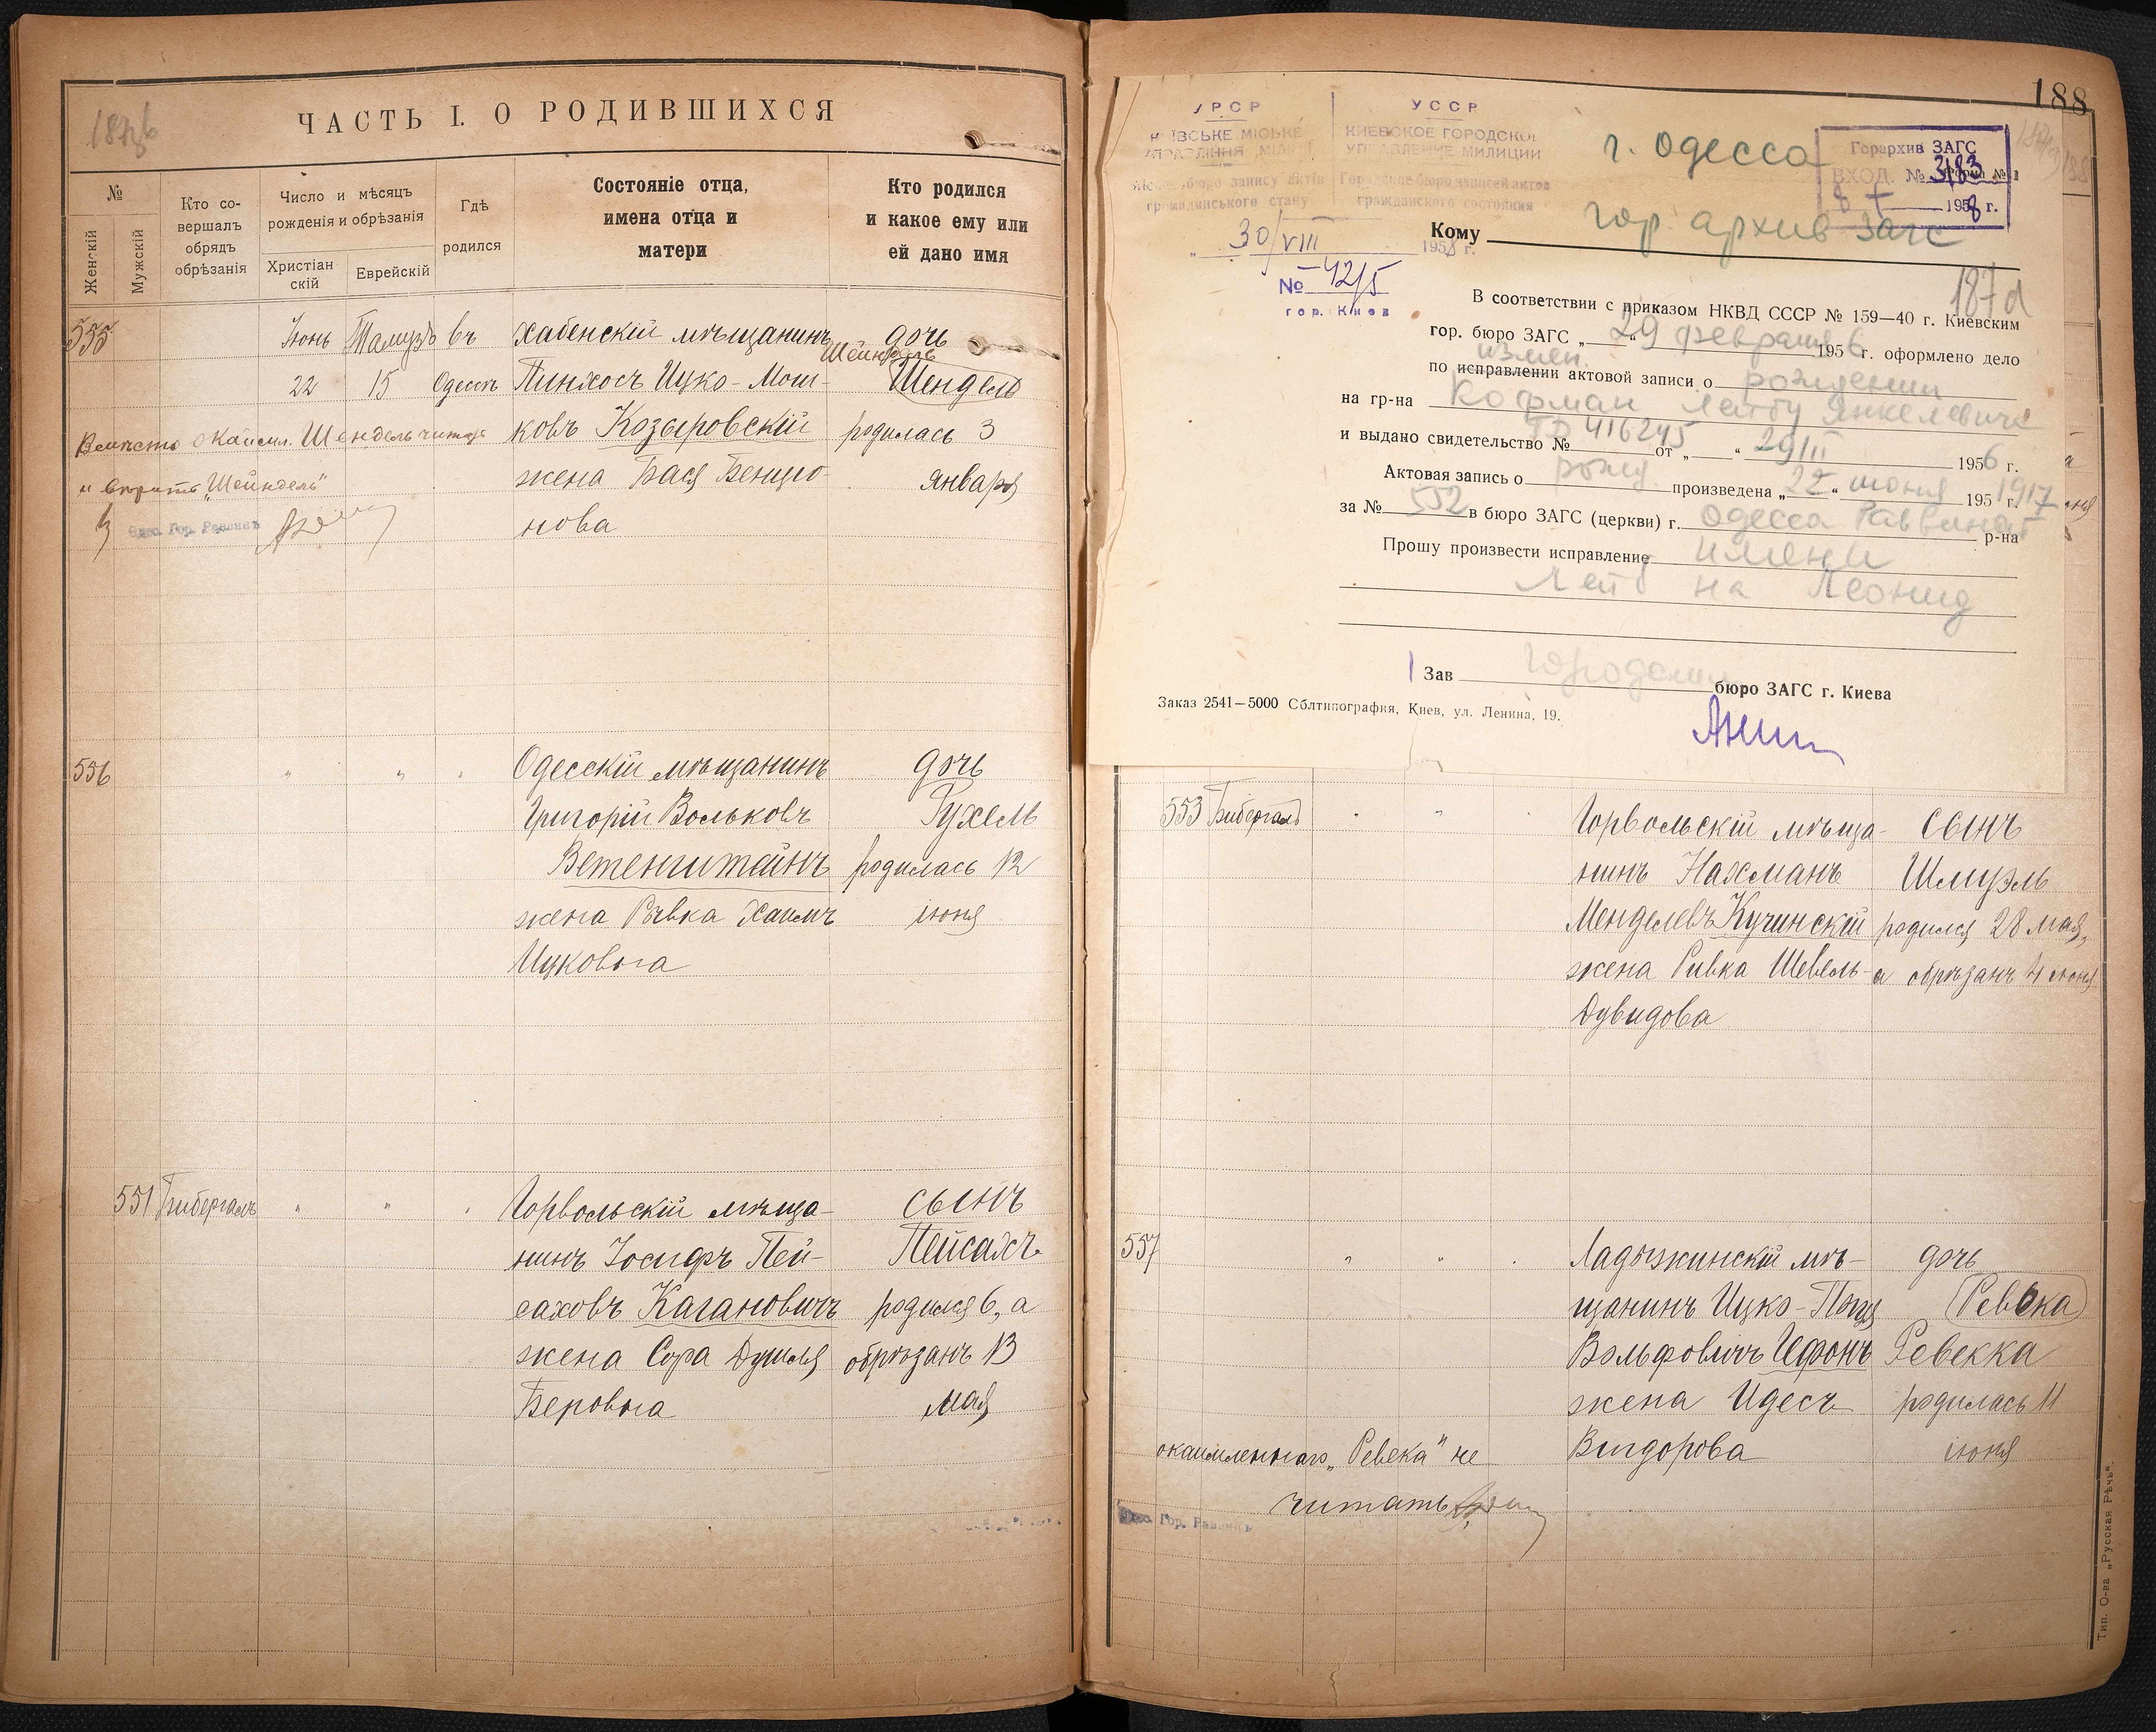 ЧАСТЬ I. О РОДИВШИХСЯ
№
Женскій
Мужскій
Кто со-
вершалъ
обрядъ
обрѣзанія
Число и мѣсяцъ
рожденія и обрѣзанія
Христіан
скій
Еврейскій
Гдѣ
родился
Состояніе отца,
имена отца и
матери
Кто родился
и какое ему или
ей дано имя
555 Іюнь Тамузъ въ Хабенскій мѣщанинъ дочь
Шейндель
22 15 Одессѣ Пинхосъ Ицко-Мош- Шендель
Вмѣсто окаймл. Шендель читать ковъ Козыровскій родилась 3
и вѣрить „Шейндель" жена Бася Бенціо- января
Одес. Гор. Раввинъ нова
556 " " " Одесскій мѣщанинъ дочь
Григорій Вольковъ Рухель
Ветенштейнъ родилась 12
жена Ривка Хаимъ іюня
Ицковна
551 Бибергалъ " " " Горвольскій мѣща- сынъ
нинъ Іосифъ Пей- Пейсахъ
саховъ Кагановичъ родился 6, а
жена Сора Душля обрѣзанъ 13
Беровна мая
188
УРСР
КИЇВСЬКЕ МІСЬКЕ
УПРАВЛІННЯ МІЛІЦІЇ
бюро запису актів
громадянського стану
УССР
КИЕВСКОЕ ГОРОДСКОЕ
УПРАВЛЕНИЕ МИЛИЦИИ
Городское бюро записей актов
гражданского состояния
„ 30/VIII 1958 г.
№ 42/5
гор. Киев
г. Одесса
Горархив ЗАГС
ВХОД. № 3183
1958 г.
Кому гор. архив Загс
187а
В соответствии с приказом НКВД СССР № 159—40 г. Киевским
гор. бюро ЗАГС „ 29 " февраля 1956 г. оформлено дело
измен.
по исправлении актовой записи о рождении
на гр-на Кофман Лейбу Янкелевича
и выдано свидетельство № 416245 от „ " 29/II 1956 г.
Актовая запись о рожд. произведена „ 22 " июня 195 1917 г.
за № 552 в бюро ЗАГС (церкви) г. Одесса Раввинат р-на
Прошу произвести исправление имени
Лейб на Леонид
Зав Городским бюро ЗАГС г. Киева
Заказ 2541—5000 Облтипография, Киев, ул. Ленина, 19.
553 Бибергалъ " " " Горвольскій мѣща- сынъ
нинъ Нахманъ Шмуэль
Менделевъ Кучинскій родился 28 мая,
жена Ривка Шевель- а обрѣзанъ 4 іюня
Дувидова
557 " " " Ладыжинскій мѣ- дочь
щанинъ Ицко- Ревека
Вольфовичъ Цефонъ Ревекка
жена Идесъ родилась 11
окаймленнаго „Ревека" не Вигдорова іюня
читать
Одес. Гор. Раввинъ
Тип. О-ва „Русская Рѣчь".